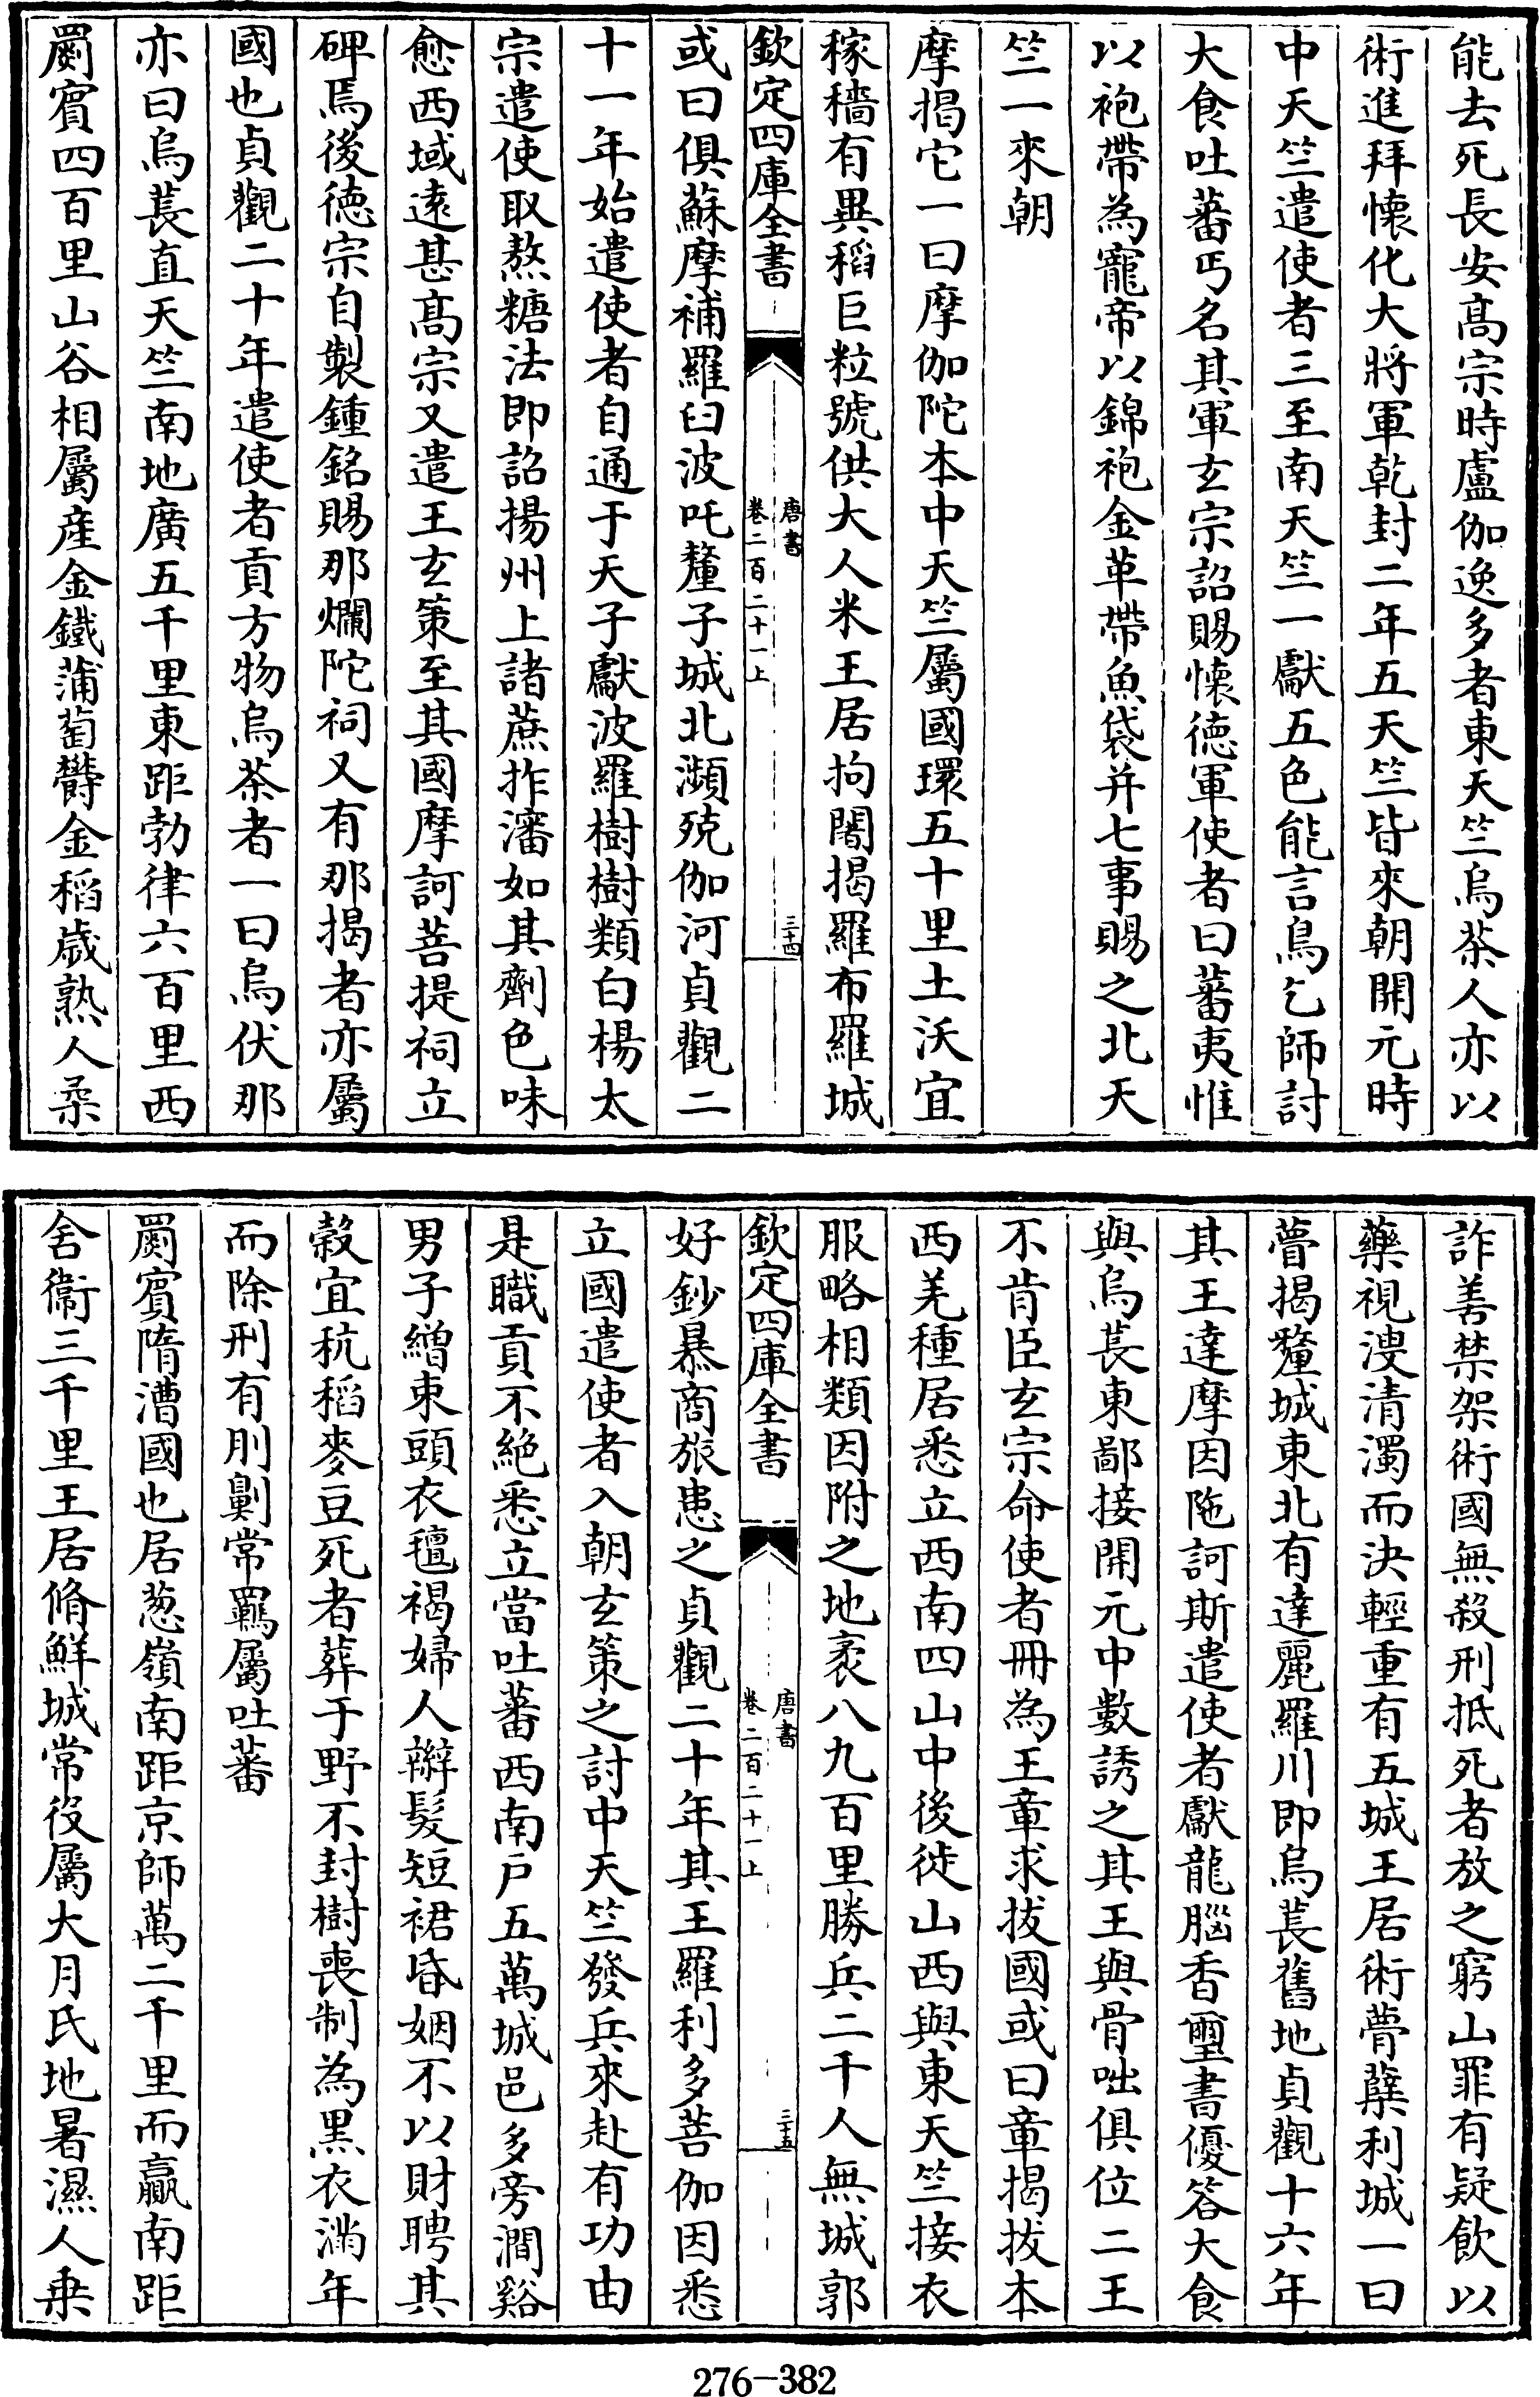 能去死長安髙宗時盧伽逸多者東天竺烏茶人亦以
術進拜懐化大將軍乾封二年五天竺皆來朝開元時
中天竺遣使者三至南天竺一獻五色能言鳥乞師討
大食吐蕃丐名其軍玄宗詔賜懐徳軍使者曰蕃夷惟
以袍帶為寵帝以錦袍金革帶魚袋并七事賜之北天
竺一來朝
摩揭它一曰摩伽陀本中天竺屬國環五十里土沃宜
稼穡有異稻巨粒號供大人米王居拘闍揭羅布羅城
欽定四庫全書
唐書
卷二百二十一上
三十四
或曰俱蘇摩補羅曰波吒釐子城北瀕殑伽河貞觀二
十一年始遣使者自通于天子獻波羅樹樹類白楊太
宗遣使取熬糖法即詔揚州上諸蔗拃瀋如其劑色味
愈西域逺甚髙宗又遣王玄策至其國摩訶菩提祠立
碑焉後徳宗自製鍾銘賜那爛陀祠又有那揭者亦屬
國也貞觀二十年遣使者貢方物烏茶者一曰烏伏那
亦曰烏萇直天竺南地廣五千里東距勃律六百里西
罽賓四百里山谷相屬産金鐵蒲萄鬱金稻歳熟人柔
詐善禁架術國無殺刑抵死者放之窮山罪有疑飲以
藥視溲清濁而決輕重有五城王居術瞢蘖利城一曰
瞢揭釐城東北有達麗羅川即烏萇舊地貞觀十六年
其王達摩因陁訶斯遣使者獻龍腦香璽書優答大食
與烏萇東鄙接開元中數誘之其王與骨咄俱位二王
不肯臣玄宗命使者冊為王章求拔國或曰章揭拔本
西羌種居悉立西南四山中後徙山西與東天竺接衣
服略相類因附之地袤八九百里勝兵二千人無城郭
欽定四庫全書
唐書
卷二百二十一上
三十五
好鈔暴商旅患之貞觀二十年其王羅利多菩伽因悉
立國遣使者入朝玄策之討中天竺發兵來赴有功由
是職貢不絶悉立當吐蕃西南户五萬城邑多旁澗谿
男子繒束頭衣氊褐婦人辮髮短裙昏姻不以財聘其
穀宜秔稻麥豆死者葬于野不封樹喪制為黒衣滿年
而除刑有刖劓常羈屬吐蕃
罽賓隋漕國也居葱嶺南距京師萬二千里而贏南距
舍衞三千里王居脩鮮城常役屬大月氏地暑濕人乗
276-382